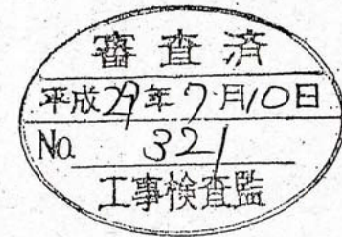 審査済
平成29年7月10日
No. 321
工事検査監